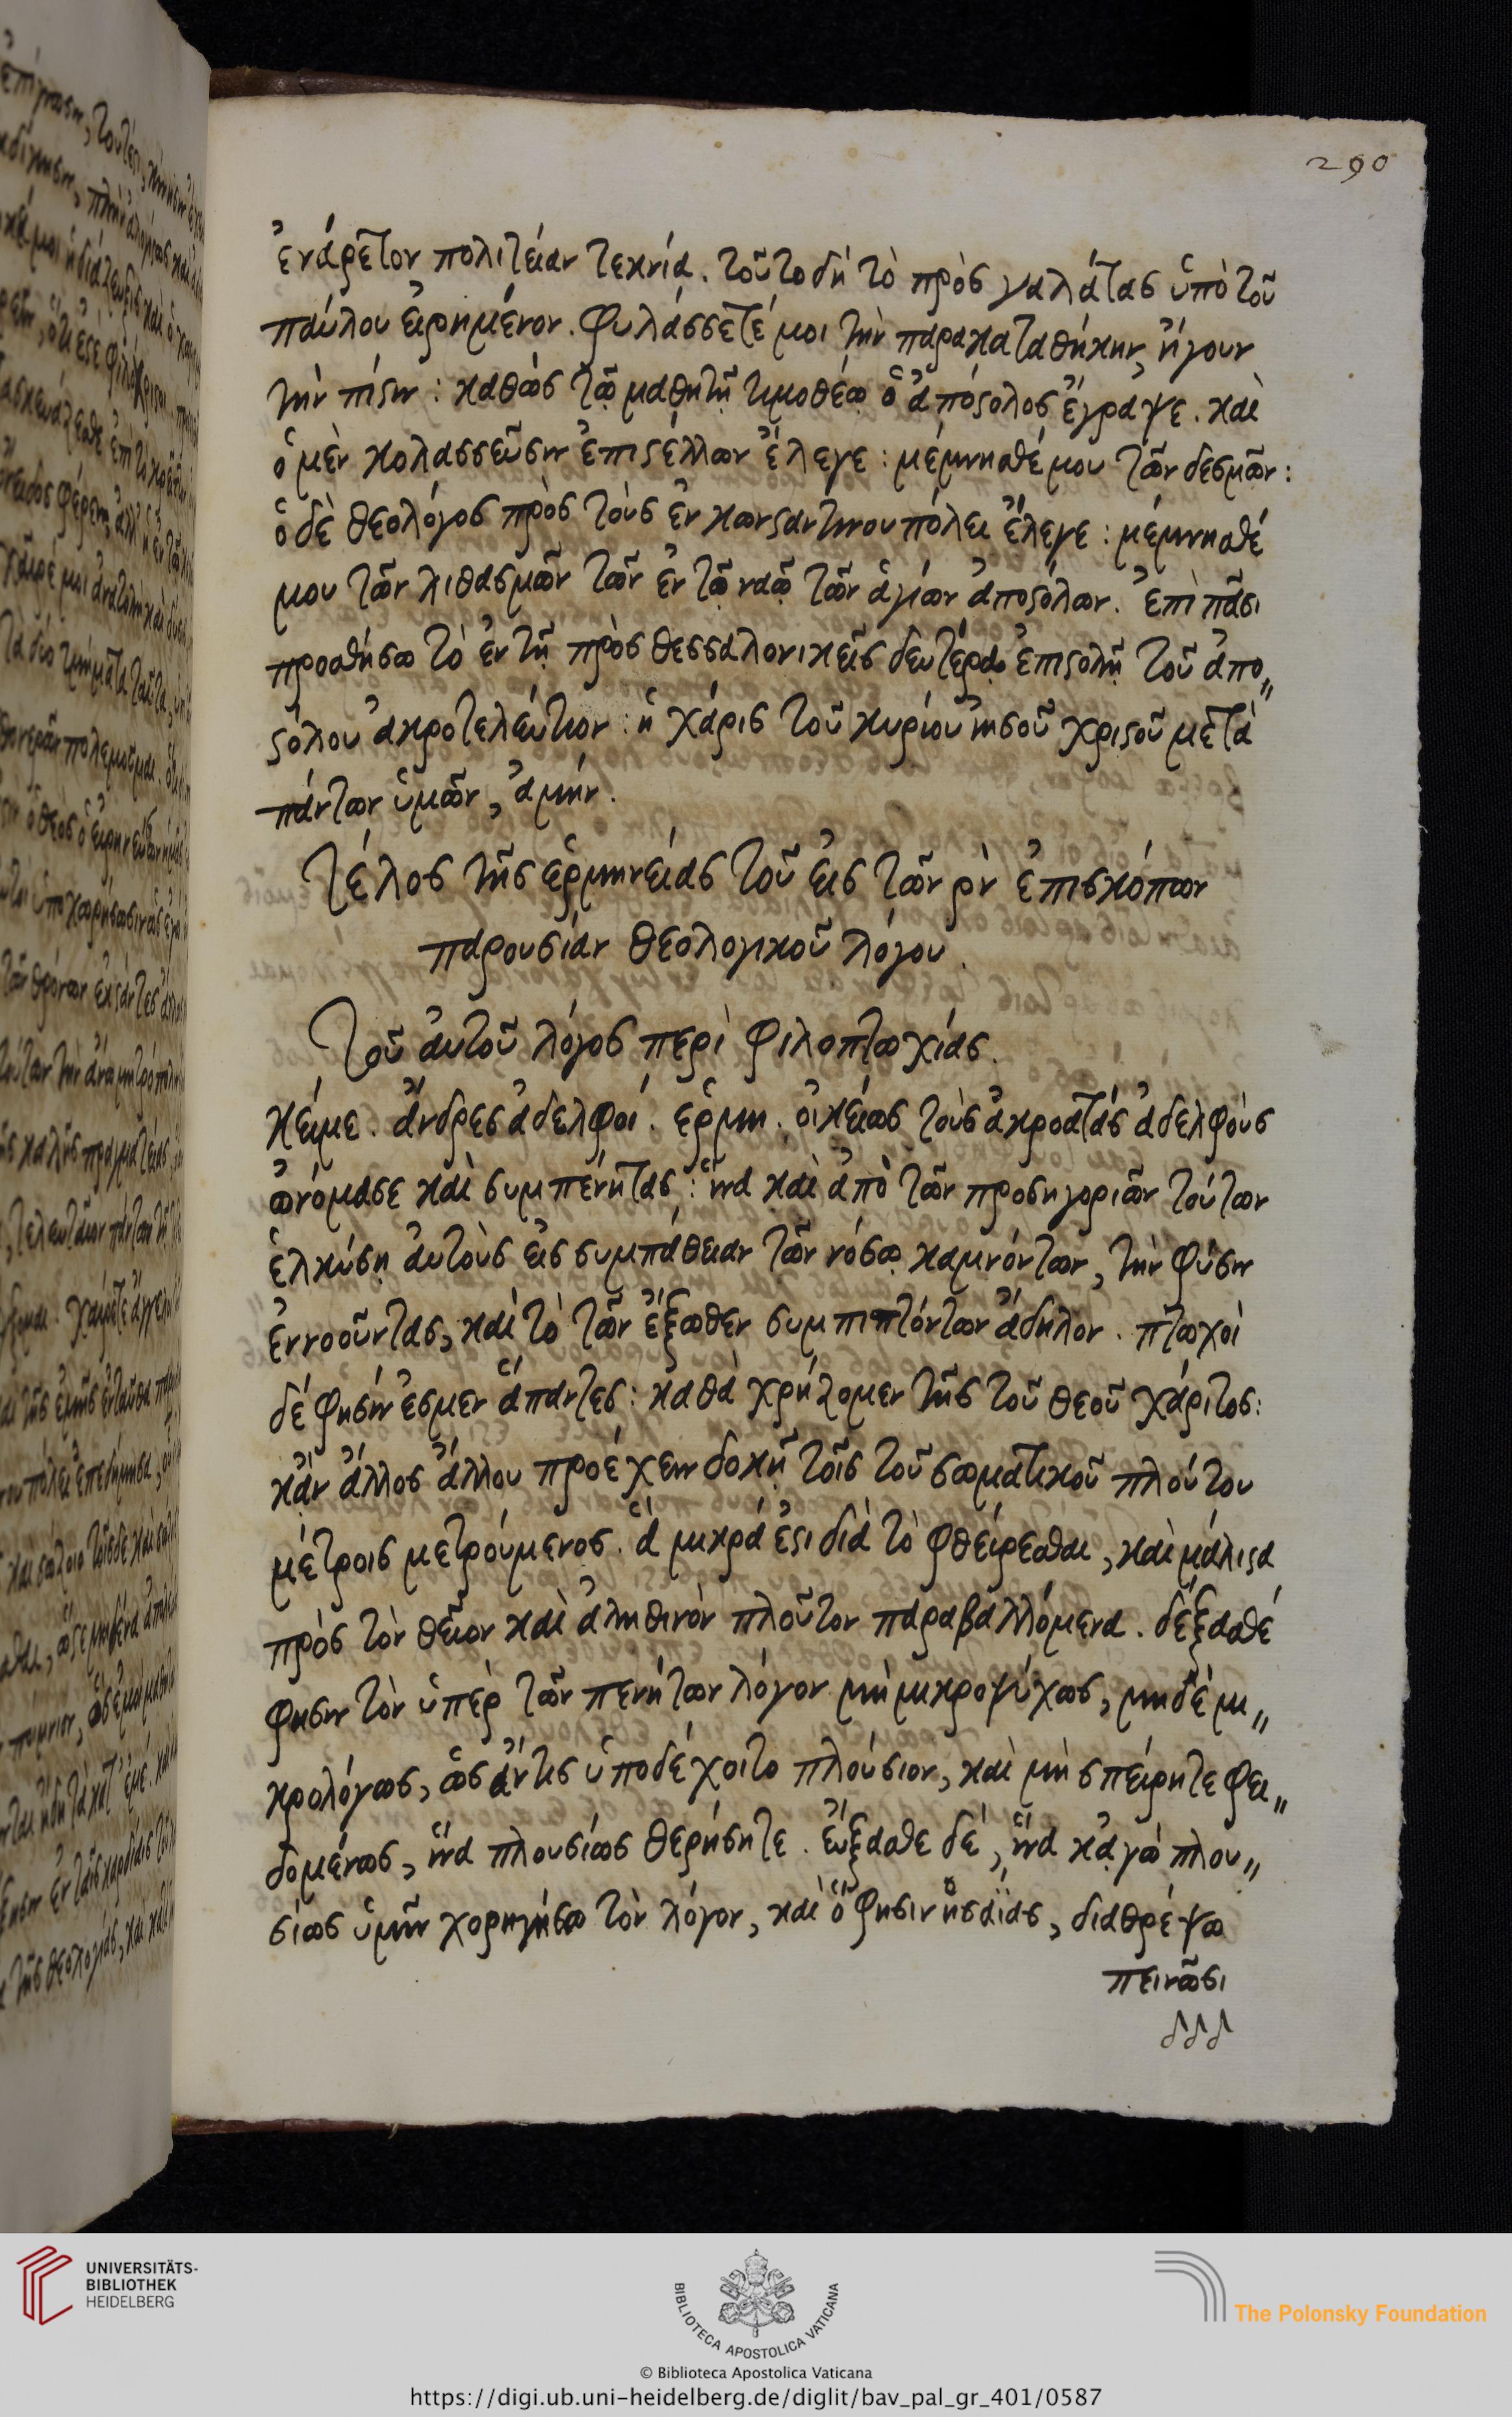 290
ἐνάρετον πολιτείαν τεκνία. τοῦτο δὴ τὸ πρὸς γαλάτας ὑπὸ τοῦ
παύλου εἰρημένον. φυλάσσετέ μοι τὴν παρακαταθήκην, ἤγουν
τὴν πίστιν : καθὼς τῷ μαθητῇ τιμοθέῳ ὁ ἀπόστολος ἔγραψε. καὶ
ὁ μὲν κολασσεῦσιν ἐπιστέλλων ἔλεγε : μέμνησθέ μου τῶν δεσμῶν :
ὁ δὲ θεολόγος πρὸς τοὺς ἐν κωνσταντινουπόλει ἔλεγε : μέμνησθέ
μου τῶν λιθασμῶν τῶν ἐν τῷ ναῷ τῶν ἁγίων ἀποστόλων. ἐπὶ πᾶσι
προσθήσω τὸ ἐν τῇ πρὸς θεσσαλονικεῖς δευτέρᾳ ἐπιστολῇ τοῦ ἀπο„
στόλου ἀκροτελεύτιον : ἡ χάρις τοῦ κυρίου ἰησοῦ χριστοῦ μετὰ
πάντων ὑμῶν, ἀμήν.
Τέλος τῆς ἑρμηνείας τοῦ εἰς τῶν ρν̀ ἐπισκόπων
παρουσίαν θεολογικοῦ λόγου.
Τοῦ αὐτοῦ λόγος περὶ φιλοπτωχίας.
κείμε. ἄνδρες ἀδελφοί. ἑρμη. οἰκείως τοὺς ἀκροατάς ἀδελφοὺς
ὠνόμασε καὶ συμπένητας : ἵνα καὶ ἀπὸ τῶν προσηγοριῶν τούτων
ἑλκύσῃ αὐτοὺς εἰς συμπάθειαν τῶν νόσῳ καμνόντων, τὴν φύσιν
ἐννοοῦντας, καὶ τὸ τῶν ἔξωθεν συμπιπτόντων ἄδηλον. πτωχοὶ
δέ φησίν ἐσμεν ἅπαντες : καθὰ χρήζομεν τῆς τοῦ θεοῦ χάριτος :
κἂν ἄλλος ἄλλου προέχειν δοκῇ τοῖς τοῦ σωματικοῦ πλούτου
μέτροις μετρούμενος. ἃ μικρά ἐστι διὰ τὸ φθείρεσθαι, καὶ μάλιστα
πρὸς τὸν θεῖον καὶ ἀληθινὸν πλοῦτον παραβαλλόμενα. δέξασθέ
φησιν τὸν ὑπὲρ τῶν πενήτων λόγον μὴ μικροψύχως, μηδὲ μι„
κρολόγως, ὡς ἄν τις ὑποδέχοιτο πλούσιον, καὶ μὴ σπείρητε φει„
δομένως, ἵνα πλουσίως θερήσητε. εὔξασθε δέ, ἵνα κᾀγὼ πλου„
σίως ὑμῖν χορηγήσω τὸν λόγον, καὶ ὅ φησιν ἡσαΐας, διαθρέψω
πεινῶσι
UNIVERSITÄTS-
BIBLIOTHEK
HEIDELBERG
BIBLIOTECA APOSTOLICA VATICANA
© Biblioteca Apostolica Vaticana
The Polonsky Foundation
https://digi.ub.uni-heidelberg.de/diglit/bav_pal_gr_401/0587